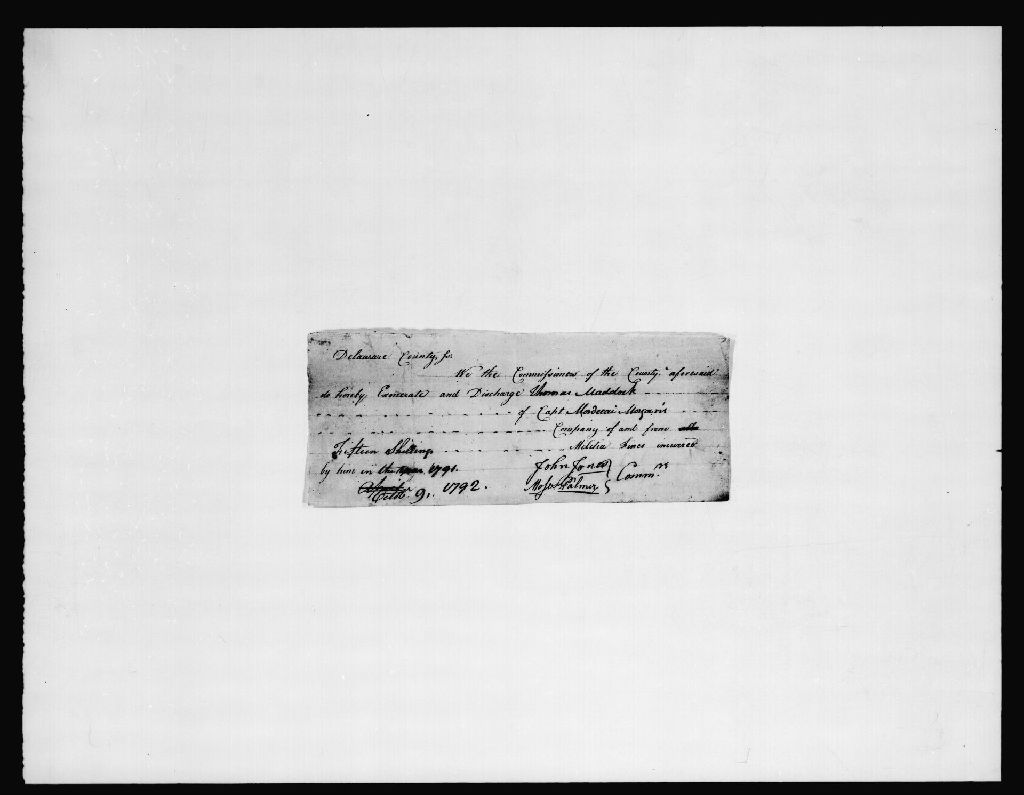 Delaware County, ss.
We the Commissioners of the County aforesaid
do hereby Exonerate and Discharge Thomas Maddock
of Capt Mordecai Morgan's
Company of and from
Fifteen Shillings Militia Fines incurred
by him in the year 1791.
John Jones
Octbr 9, 1792. Moses Palmer Commrs